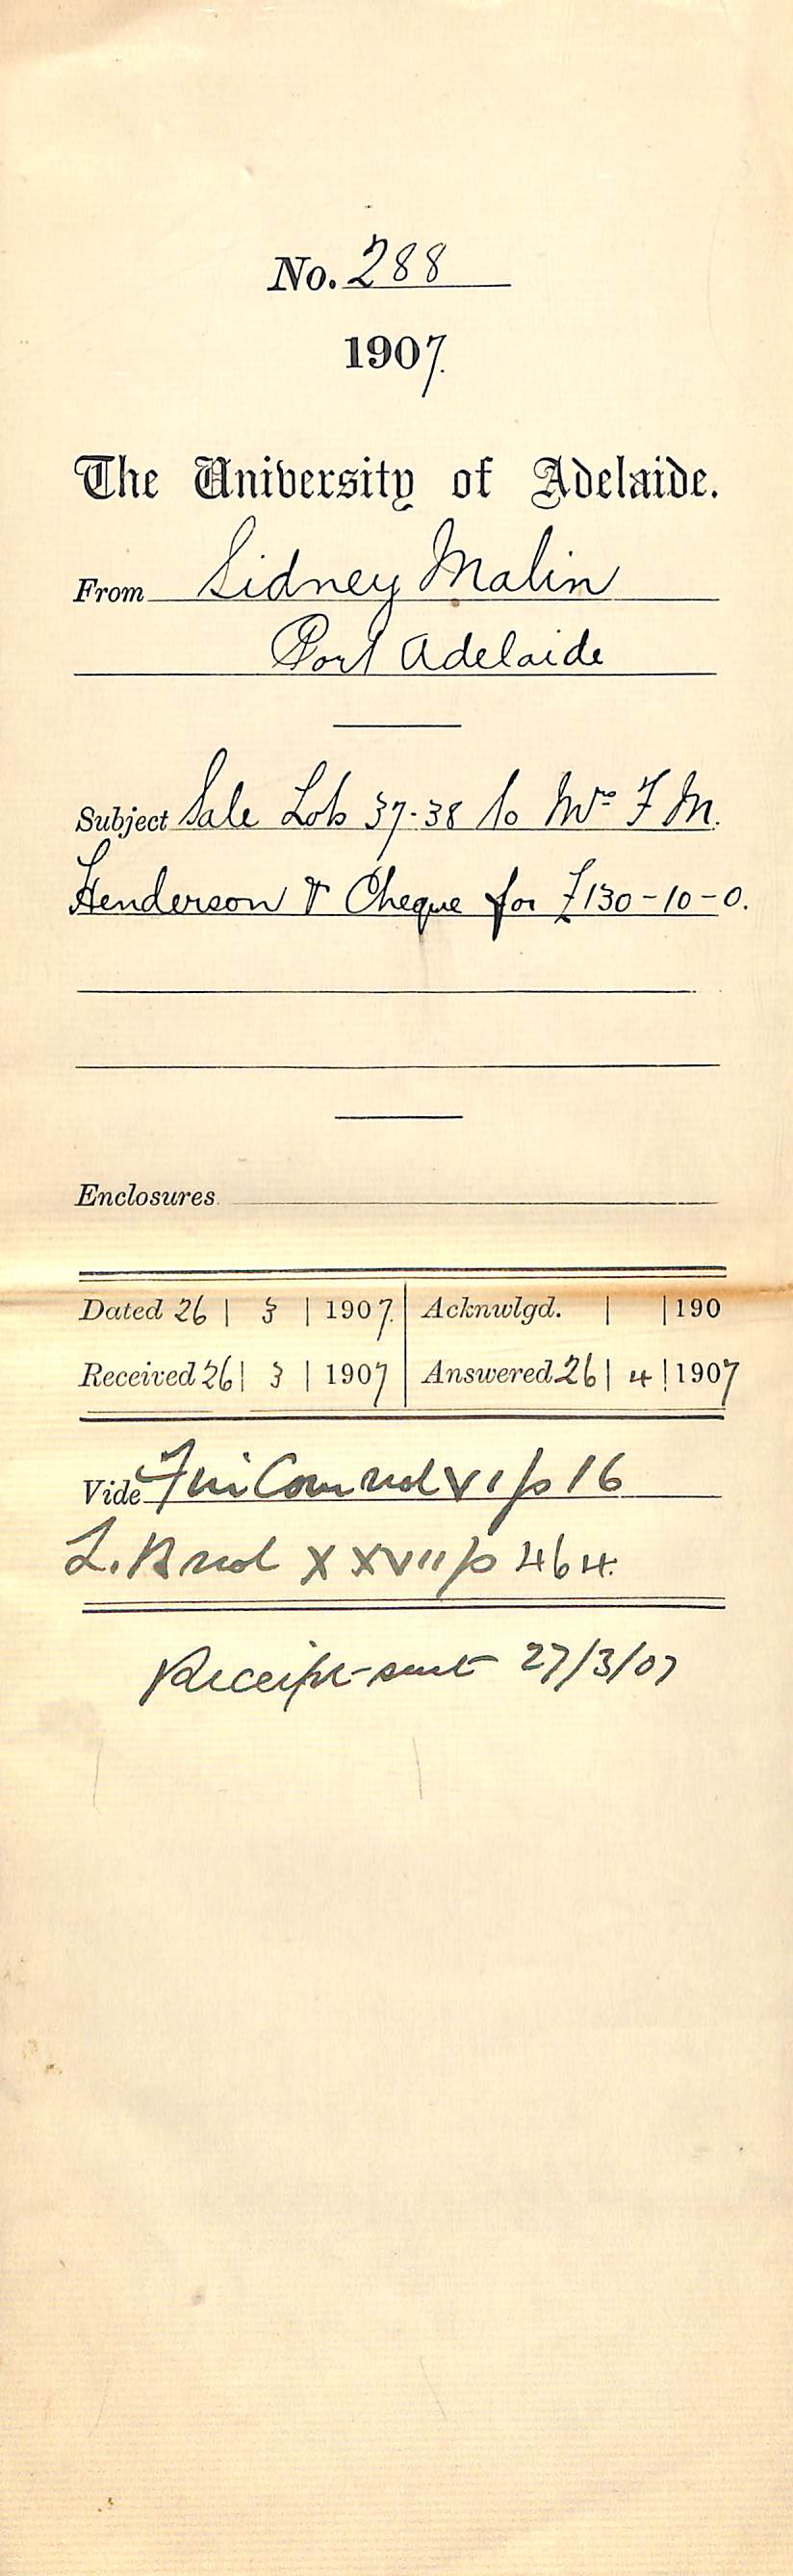 No. 288
1907.
The University of Adelaide.
From Sidney Malin
Port Adelaide
Subject Sale Lots 37-38 to Mrs F M.
Henderson & Cheque for £130-10-0.
Enclosures
Dated 26 | 3 | 1907. Acknwlgd. | | 190
Received 26 | 3 | 1907 Answered 26 | 4 | 1907
Vide Fin Com vol VI p 16
L.B vol XXVII p 464.
Receipt sent 27/3/07